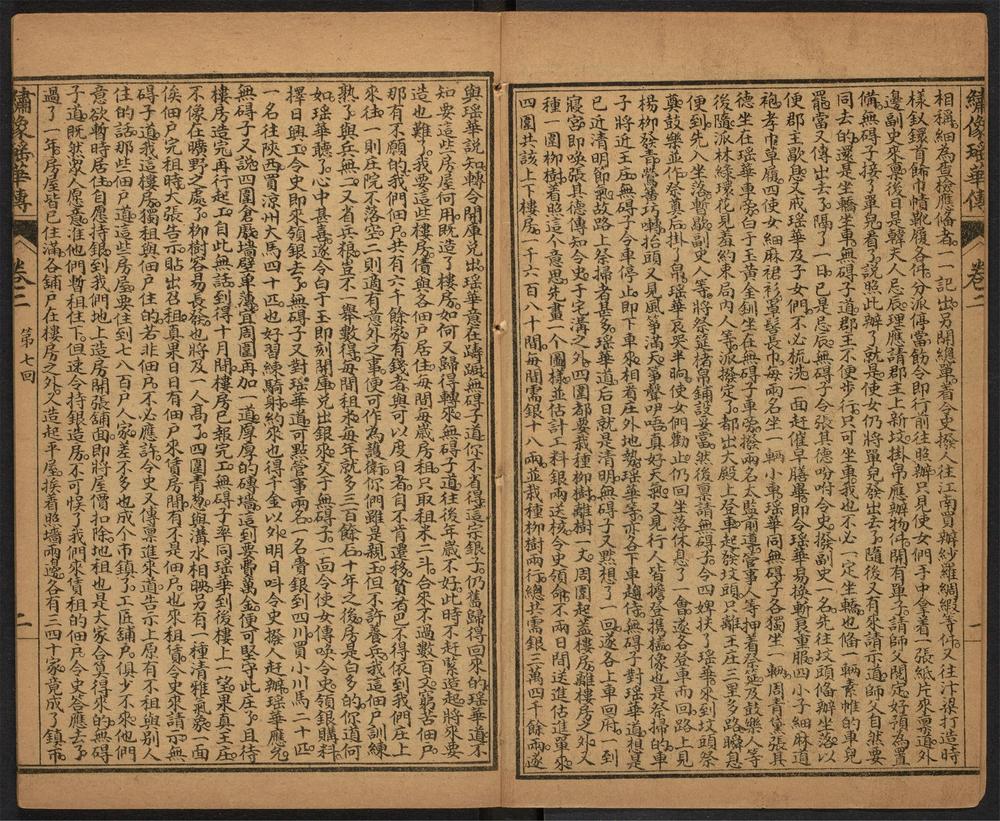 繡像瑤華傳
卷二
一
相稱細為查檢應脩者一一記出另開總單着令史撥人往江南買辦紗羅綢緞等件又往汴梁打造時
樣釵鐶首飾巾幘靴履各件分派停當飭令即行前往照辦只見使女們手中拿着一張紙片來稟道外
邊副史來稟後日是韓夫人忌辰理應請郡主上新墳掛帛應辦物件開有單子請師父閱定好預為置
備無碍子接了單兒看了說照此辦了就是使女仍將單兒發出去了隨後又有來請示道師父自然要
同去的還是坐轎坐車無碍子道郡王不便步行只可坐車我也不必一定坐轎也偹一輛素帷的車兒
罷當又傳出去了隔了一日已是忌辰無碍子令張其德吩咐令史撥副史一名先往墳頭偹辦坐落以
便郡主歇息又戒瑤華及子女們不必梳洗一面赶催早膳畢即令瑤華易換斬衰重服四小子細麻道
袍孝巾草履四使女細麻裙衫罩髮長巾每兩名坐一輛小車瑤華同無碍子各獨坐一輛周青黛張其
德坐在瑤華車旁白于玉黃金釧坐在無碍子車旁撥兩名太監前導管事人等押着祭筵及鼓樂人等
後隨派林綠環花見羞約束局內人等派撥定了都出大殿上登車起發墳頭只離王庄三里多路瞬息
便到先入坐落暫歇副史人等將祭筵楮帛鋪設妥當然後稟請無碍子令四婢扶了瑤華來到墳頭祭
奠鼓樂並作祭奠后掛了帛瑤華哀哭半晌使女們勸止仍回坐落休息了一會遂各登車而回路上見
楊柳發青鶯簧巧囀抬頭又見風箏滿天箏聲咿唔真好天氣又見行人皆擔登攜榼像也是祭掃的車
子將近王庄無碍子令車停止即下車來相着庄外地勢瑤華等亦各下車趨侍無碍子問瑤華道想是
已近清明節氣故路上祭掃者甚多瑤華道后日就是清明無碍子又黙想了一回遂各上車回府一到
寢宮即喚張其德傳知令史于宅溝之外四圍都要栽種柳樹離樹一丈周圍起蓋樓房離樓房之外又
種一圍柳樹着照這个意思先畫一个圖樣並估計工料銀兩送核令史領命不兩日間送進估進單來
四圍共該上下樓房一千六百八十間每間需銀十八兩並栽種柳樹兩行總共需銀三萬四千餘兩遂
與瑤華說知轉令開庫兌出瑤華意在躊躇無碍子道你不省得這宗銀子仍舊歸得回來的瑤華道不
知要這些房屋何用既造了樓房如何又歸得轉來無碍子道往後年歲不好此時不赶蓋造起將來要
造也難了我要這些樓房儥與各佃戶居住每間每歲房租只取租米二斗合來不過數百文窮苦佃戶
那有不願的我們佃戶共有六千餘家有錢者與可以度日者自不肯遷移貧者巴不得依到我們庄上
來住一則庄院不落空二則適有意外之事便可作為護衛你們雖是親王但不許養兵我這佃戶訓練
熟了與兵無二又省兵粮豈不一舉數得每間租米每年就多三百餘石十年之後房是白多的你道何
如瑤華聽了心中甚喜遂令白于玉即刻開庫兌出銀來交于無碍子一面令使女傳喚令史領銀購料
擇日興工令史即來領銀去了無碍子又對瑤華道可點管事兩名一名賫銀到四川買小川馬二十匹
一名往陝西買涼州大馬四十匹也好習練騎射約來也得千金以外明日叫令史撥人赶辦瑤華應允
無碍子又說四圍倉廒牆壁單薄宜周圍再加一道厚厚的磚墻這到要費萬金便可堅守此庄了且待
樓房造完再行起工自此無話到得十月間樓房已報完工無碍子率同瑤華到後樓上一望果真王庄
不像在曠野之處了柳樹容易長發也將及一人高了四圍青葱與溝水相映另有一種清雅氣象一面
俟佃戶完租時大張告示貼出召租真果日日有佃戶來賃房間有不是佃戶也來租賃令史來請示無
碍子道我這樓房獨租與佃戶住的若非佃戶不必應許令史又傳稟進來道告示上原有不租與別人
住的話那些佃戶道這些房屋要住到七八百戶人家差不多也成个市鎮了工匠舖戶俱少不來他們
意欲暫時居住自愿持銀到我們地上造房開張舖面即將屋價扣除地租也是大家合算得來的無碍
子道既然衆人愿意准他們暫租住下但速令持銀造房不可悞了我們來賃租的佃戶令史答應去了
過了一年房屋皆已住滿各舖戶在樓房之外又造起平屋挨着照墻兩邊各有三四十家竟成了鎮市
繡像瑤華傳
卷二
第七回
二